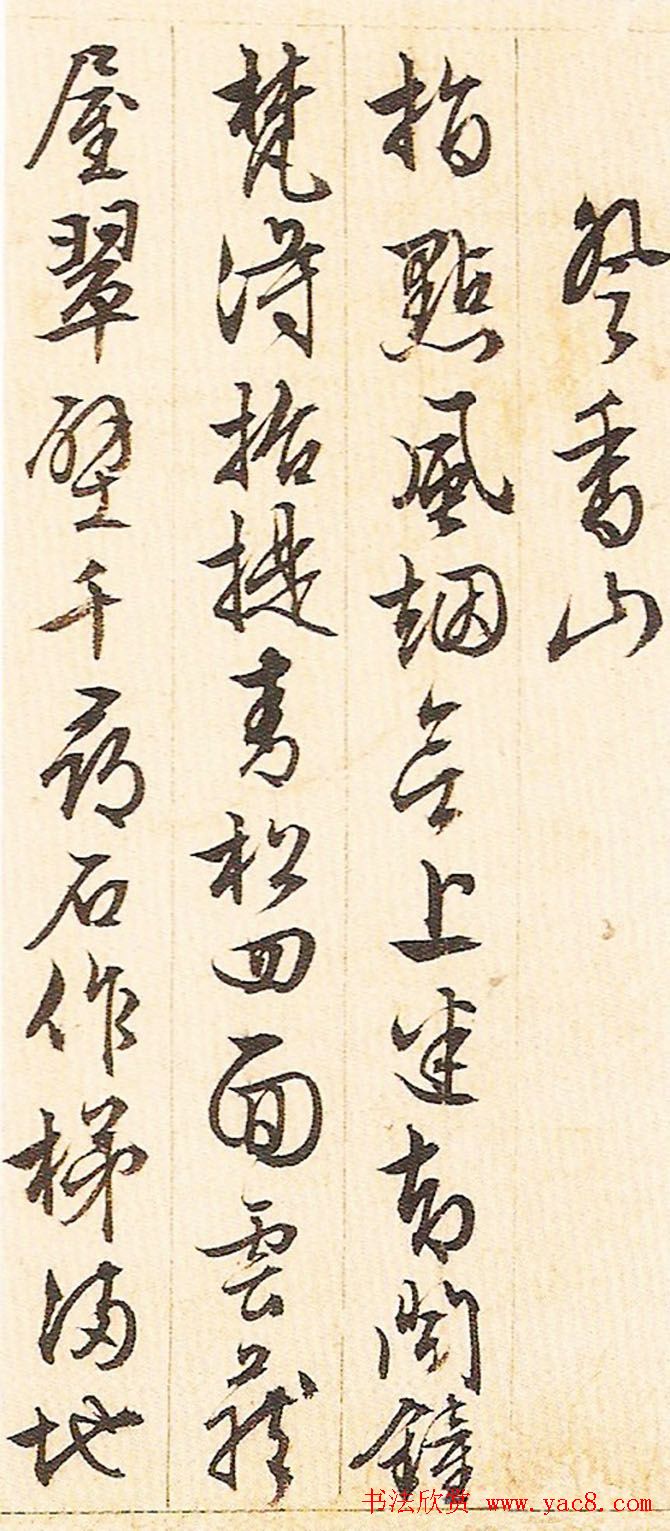 登香山
指點風烟上迷却聞鐘
梵得招提青松四面雲藏
屋翠壁千尋石作梯滿地
书法欣赏 www.yac8.com